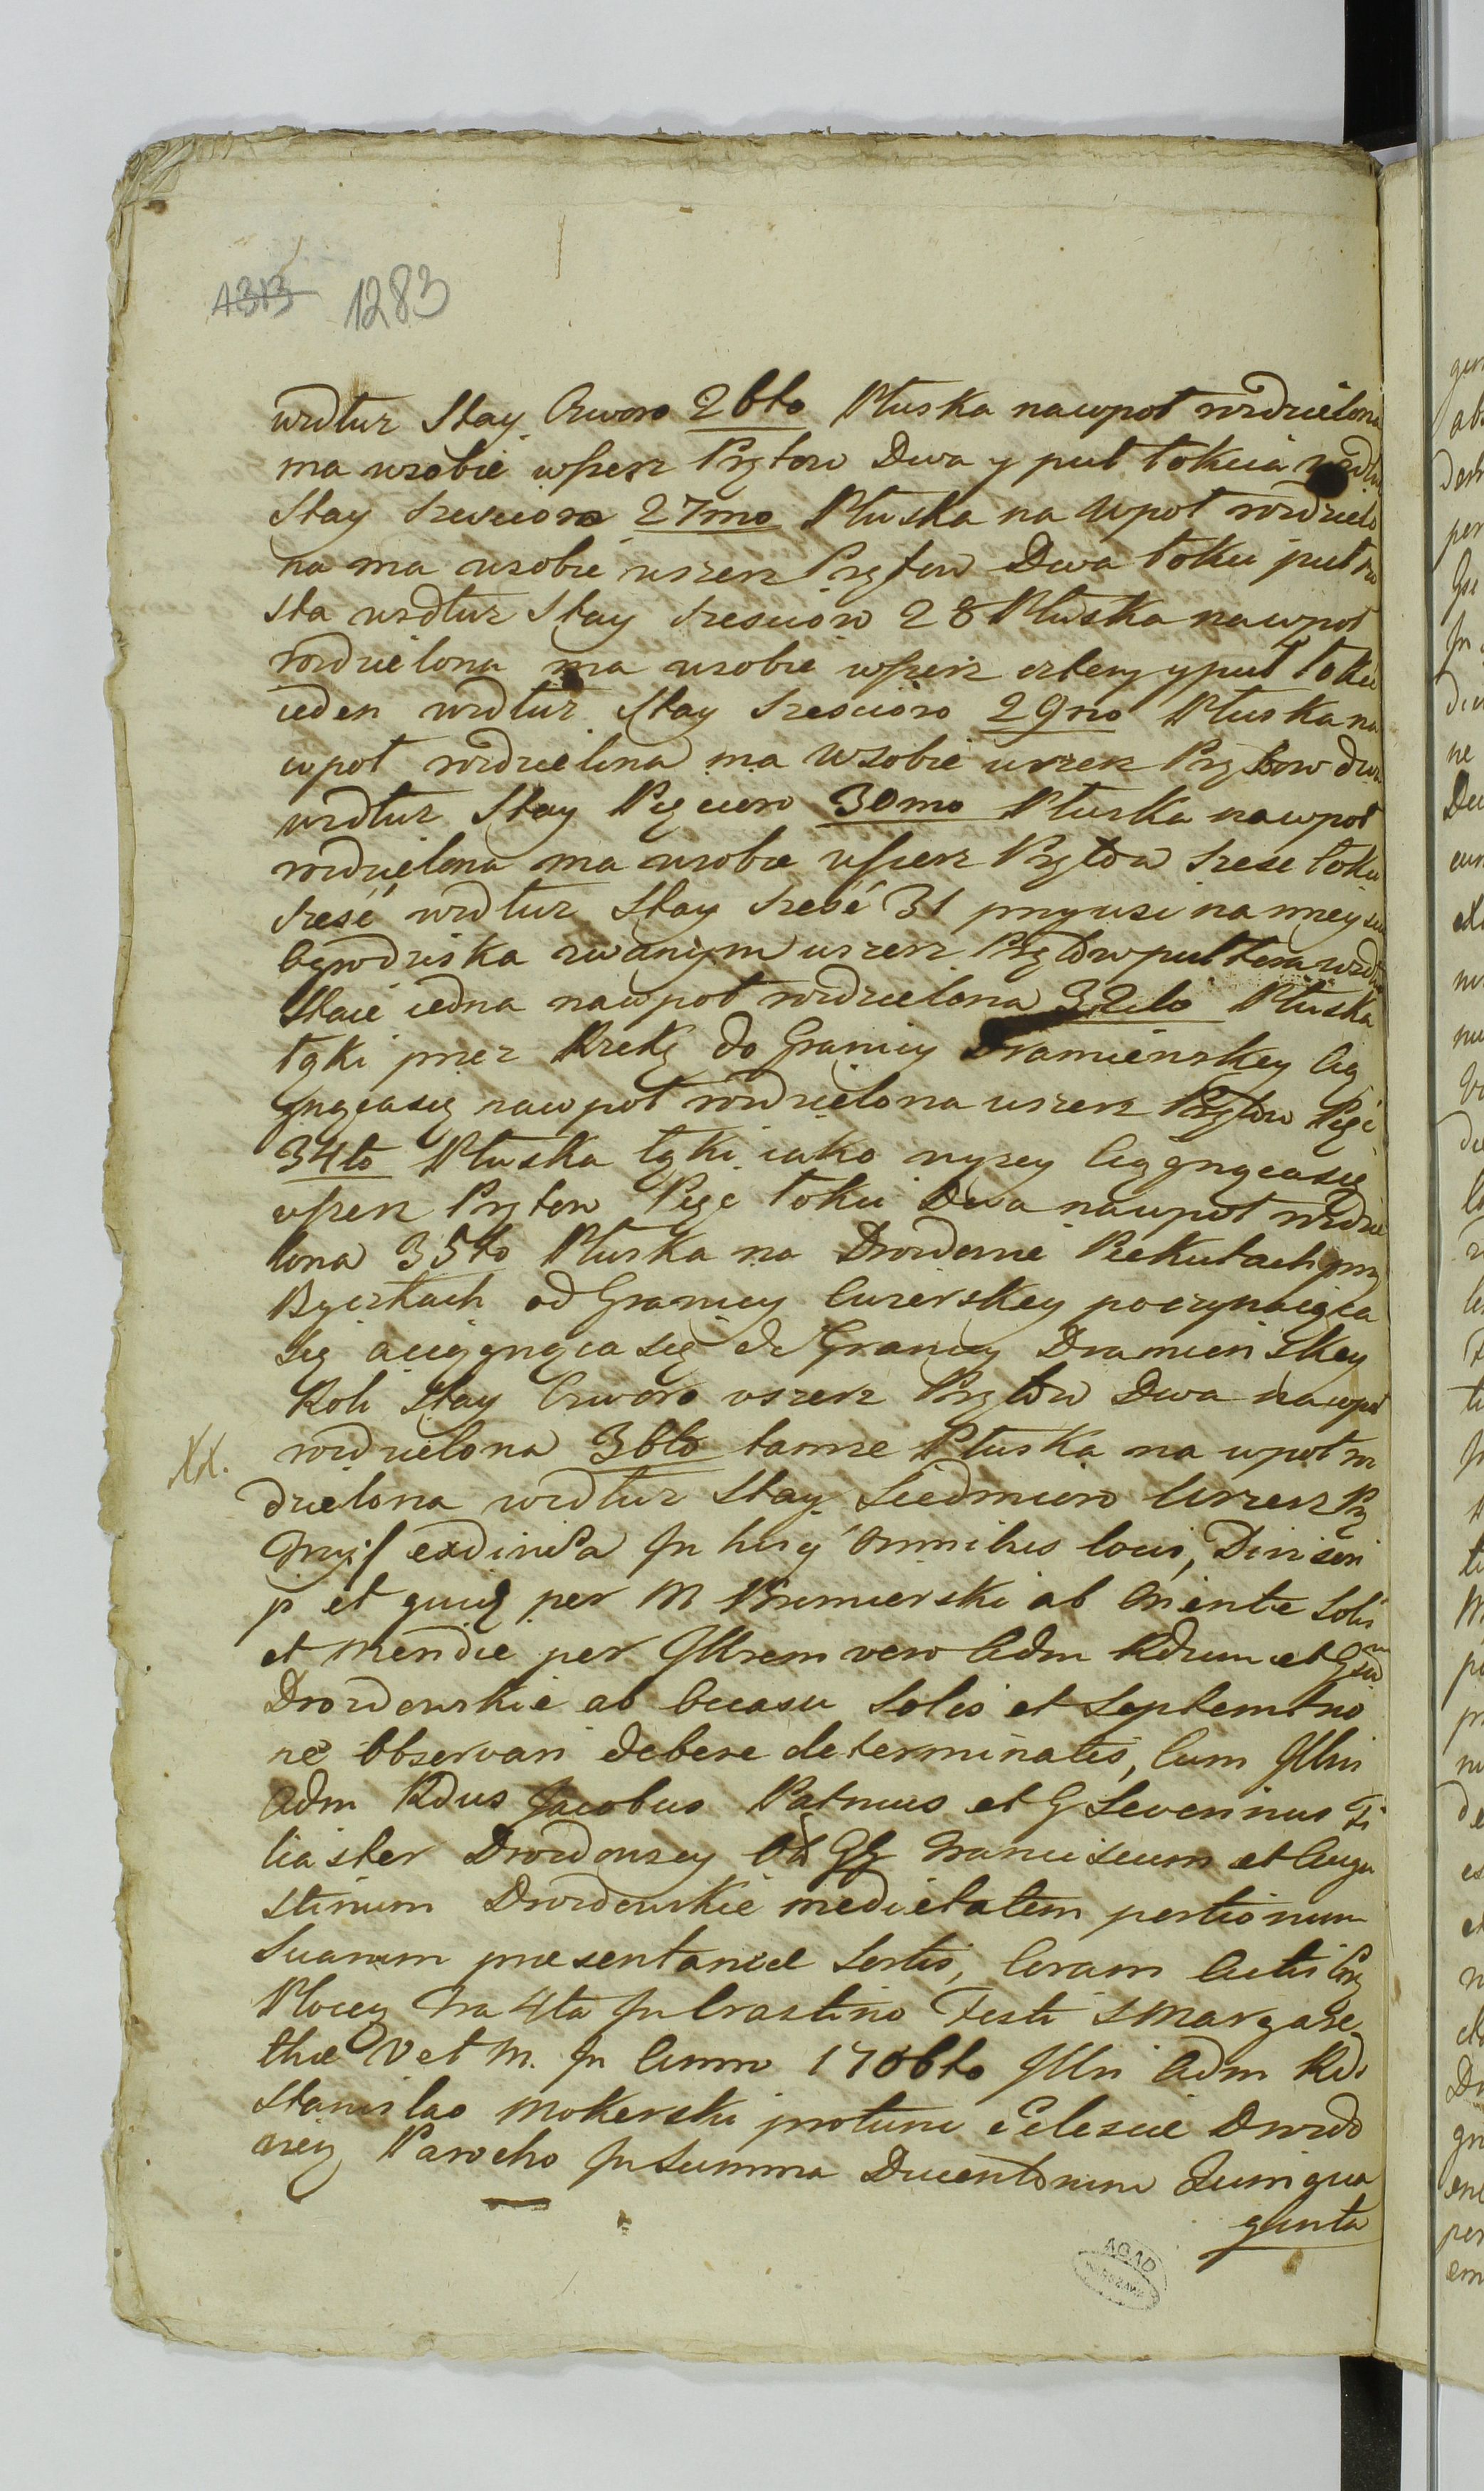 1313 1283
wzdłuz Stay Czworo 26to Płuska nawpoł rozdzielona
ma wsobie wszerz Prętow Dwa y puł łokcia wzdłuz
Stay szescioro 27mo Płuska na wpoł rozdzielo
na ma wsobie wszerz Prętow Dwa łokci puł tu
sta wzdłuz Stay szescioro 28 Płuska nawpoł
rozdzielona ma wsobie wszerz cztery y puł łokci
ieden wzdłuz Stay szescioro 29no Płuska na
wpoł rozdzielona ma wsobie wszerz Prętow dwa
wzdłuz Stay Pięcioro 30mo Płuska nawpoł
rozdzielona ma wsobie wszerz Prętow szesc łokci
szesć wzdłuz Stay szesć 31 przy wsi na mieyscu
Ogrodziska zwanym wszerz Prętow puł tora wzdłuz
Staie iedna nawpoł rozdzielona 32do Płuska
łąki przez Rzekę do Granicy Dramienskey Cią
gnącasię nawpoł rozdzielona wszerz Prętow Pięć
34to Płuska łąki iako wyzey Ciągnącasię
wszerz Prętow Pięc łokci Dwa nawpoł rozdzie
lona 35to Płuska na Drozdowie Piekutach przy
Byczkach od Granicy Cuzerskey poczynaiąca
się aciągnąca się do Granicy Dramienskey
Roli Stay Czworo wszerz Prętow Dwa nawpoł
XX. rozdzielona 36to tamze Płuska na wpoł ro
dzielona wzdłuz Stay Siedmioro wszerz Prę
exdivisa In hisq omnibus locis, Division
p et quidq per M Kremierski ab Oriente Solis
et Meridie per Illrem vero Adm Rdum et Gsum
Drozdowskie ab Occasu Solis et Septemtrio
ne Observari debere determinatis, Cum Illris
Adm Rdus Jacobus Patruus et G Severinus Fi
liaster Drozdowscy GG Franciscum et Augu
stinum Drozdowskie medietatem portionum
Suarum praesentaneae Sortis, Coram Actis
Plocen Fra 4ta In Crastino Festi S Margare
thae V et M. In Anno 1706to Illri Adm Rdo
Stanislao Mokerski protunc Eclesiae Drozdo
vien Parocho In Summa Ducentorum Quinqua
ginta
AGAD
WARSZAWA